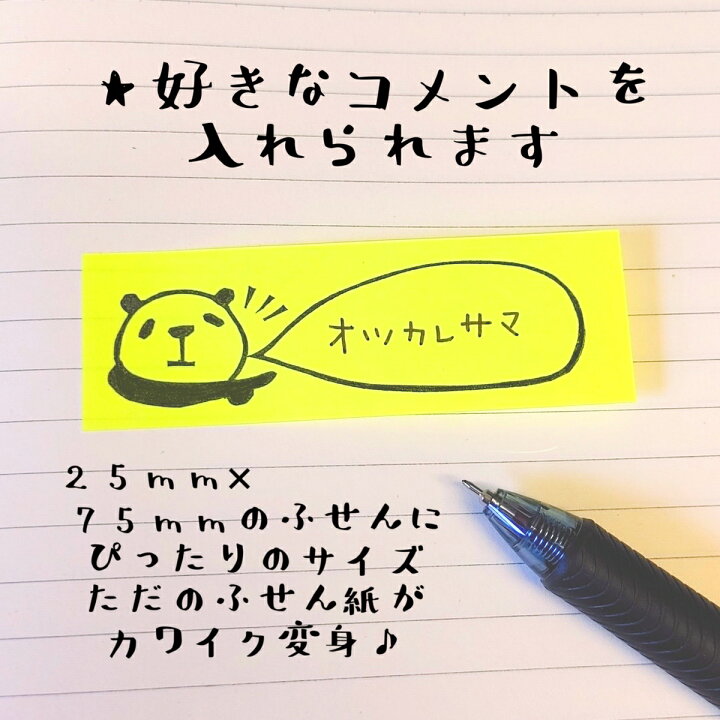 ★好きなコメントを
入れられます
オツカレサマ
25mm×
75mmのふせんに
ぴったりのサイズ
ただのふせん紙が
カワイク変身♪